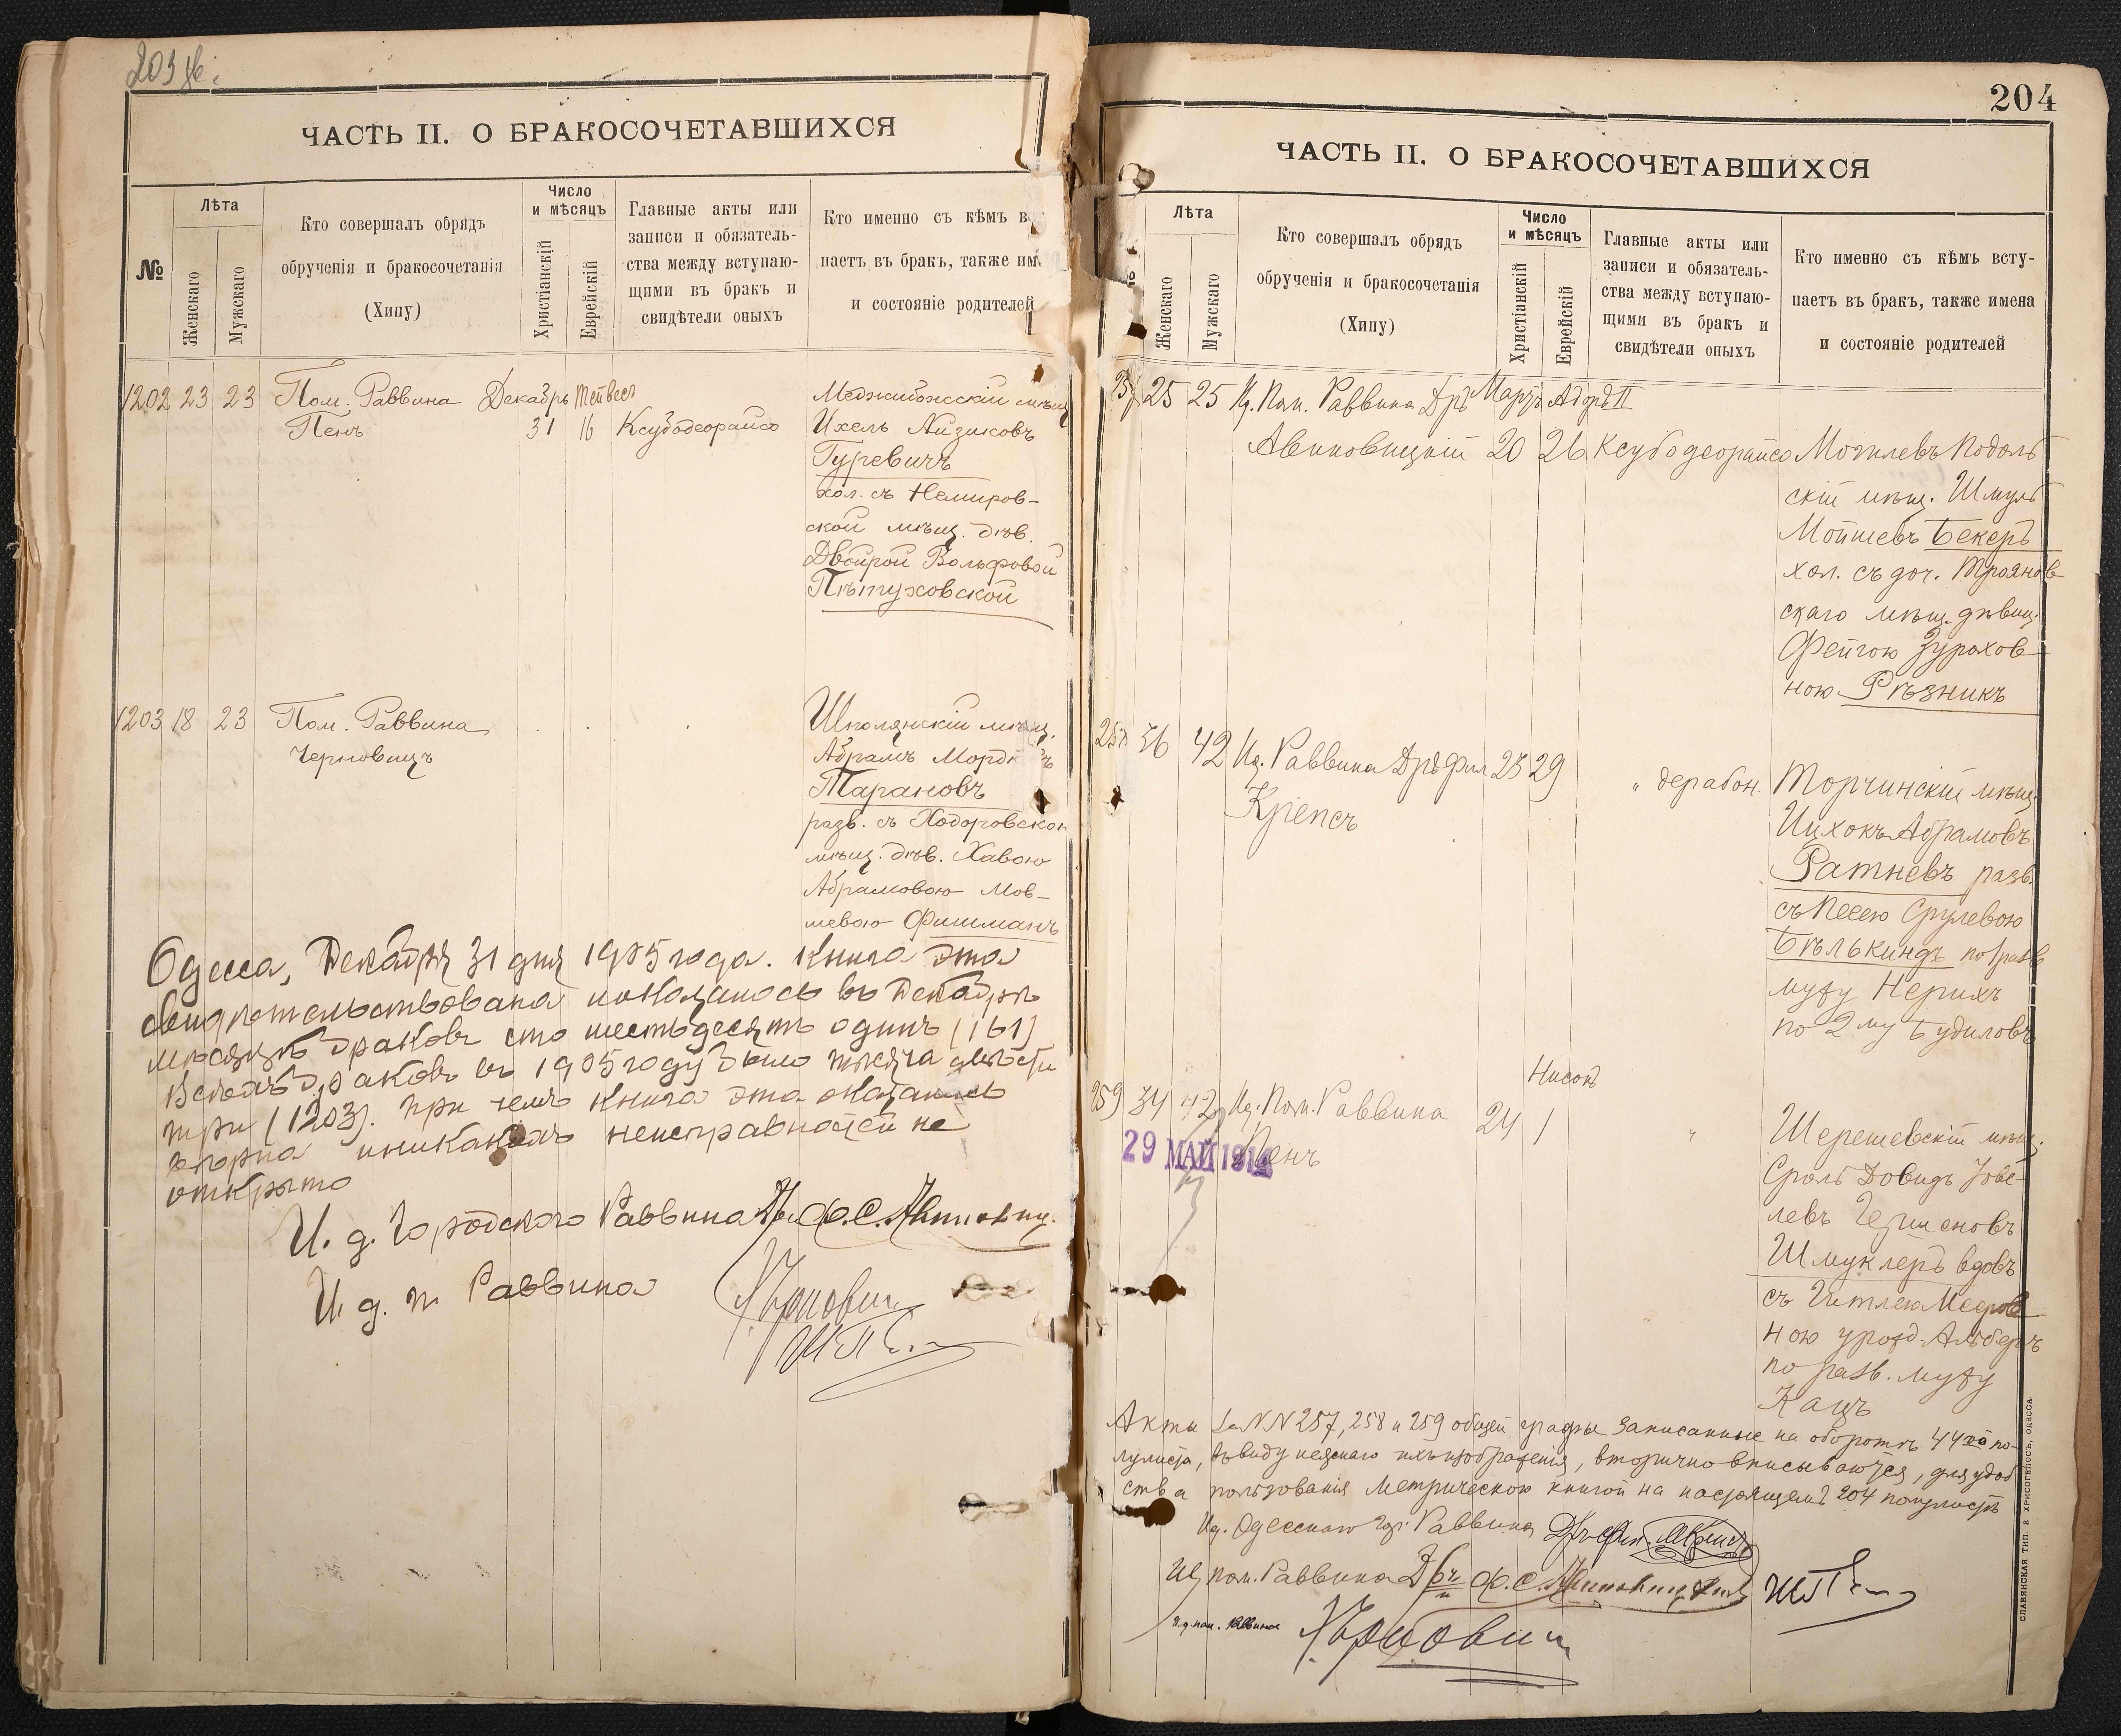 203 об.
ЧАСТЬ II. О БРАКОСОЧЕТАВШИХСЯ
№
Лѣта
Женскаго
Мужскаго
Кто совершалъ обрядъ
обрученія и бракосочетанія
(Хипу)
Число
и мѣсяцъ
Христіанскій
Еврейскій
Главные акты или
записи и обязатель-
ства между вступаю-
щими въ бракъ и
свидѣтели оныхъ
Кто именно съ кѣмъ в
паетъ въ бракъ, также им
и состояніе родителей
1202 23 23 Пом. Раввина Декабрь Тейвесъ Меджибожскій мѣщ.
Пенъ 31 16 Ксубодеорайсо Ихель Айзиковъ
Гуревичъ
хол. съ Немиров-
ской мѣщ. дѣв.
Двойрой Вольфовой
Пѣтуховской
1203 18 23 Пом. Раввина Шполянскій мѣщ.
Черновицъ Абрамъ Мордк
Тарановъ
разв. съ Ходоровской
мѣщ. дѣв. Хавою
Абрамовою Мов-
шевою Фишманъ
Одесса, Декабря 31 дня 1905 года. Книга эта
свидѣтельствована и оказалось въ Декабрѣ
мѣсяцѣ браковъ сто шестьдесятъ одинъ (161)
Всѣхъ браковъ въ 1905 году было тысяча двѣсти
три (1203). При чемъ книга эта оказалась
и никакихъ неисправностей не
открыто
И. д. Городского Раввина Др. Ф. С.
И. д. п. Раввина
204
ЧАСТЬ II. О БРАКОСОЧЕТАВШИХСЯ
Лѣта
Женскаго
Мужскаго
Кто совершалъ обрядъ
обрученія и бракосочетанія
(Хипу)
Число
и мѣсяцъ
Христіанскій
Еврейскій
Главные акты или
записи и обязатель-
ства между вступаю-
щими въ бракъ и
свидѣтели оныхъ
Кто именно съ кѣмъ всту-
паетъ въ бракъ, также имена
и состояніе родителей
257 25 25 Ид. Пом. Раввина Дръ Мартъ Адоръ II
Авиновицкій 20 26 Ксубодеорайсо Могилевъ Подоль
скій мѣщ. Шмуль
Мойшевъ Бекеръ
хол. съ доч. Троянов
скаго мѣщ. дѣвиц.
Фейгою Зурахов
ною Рѣзникъ
258 36 42 Ид. Раввина Дръ Фил 23 29 " дерабон. Торчинскій мѣщ.
Крепсъ Ицхокъ Абрамовъ
Ратневъ разв.
съ Песею Срулевою
Бѣлькиндъ по 1 разв
мужу Нерихъ
по 2му Будиловъ
Нисонъ
259 34 42 Ид. Пом. Раввина 24 1 " Шерешевскій мѣщ.
Пенъ Сроль Довидъ Іове-
29 МАЙ 191
левъ Гершоновъ
Шмуклеръ вдовъ
съ Гитлею Мееров
ною урожд. Альберъ
по разв. мужу
Кацъ
Акты за NN 257, 258 и 259 общей графы записанные на оборотѣ 44го по-
лулиста, въ виду неяснаго ихъ изображенія, вторично вписываются, для удоб
ства пользованія метрическою книгой на настоящемъ 204 полулистѣ
Ид. Одесскаго Гор. Раввина Дръ Фил. Крепсъ
Ид пом. Раввина Дръ Ф. С. Авиновицкій
И. д. пом. Раввина
СЛАВЯНСКАЯ ТИП. Е ХРИСОГЕЛОСЪ, ОДЕССА